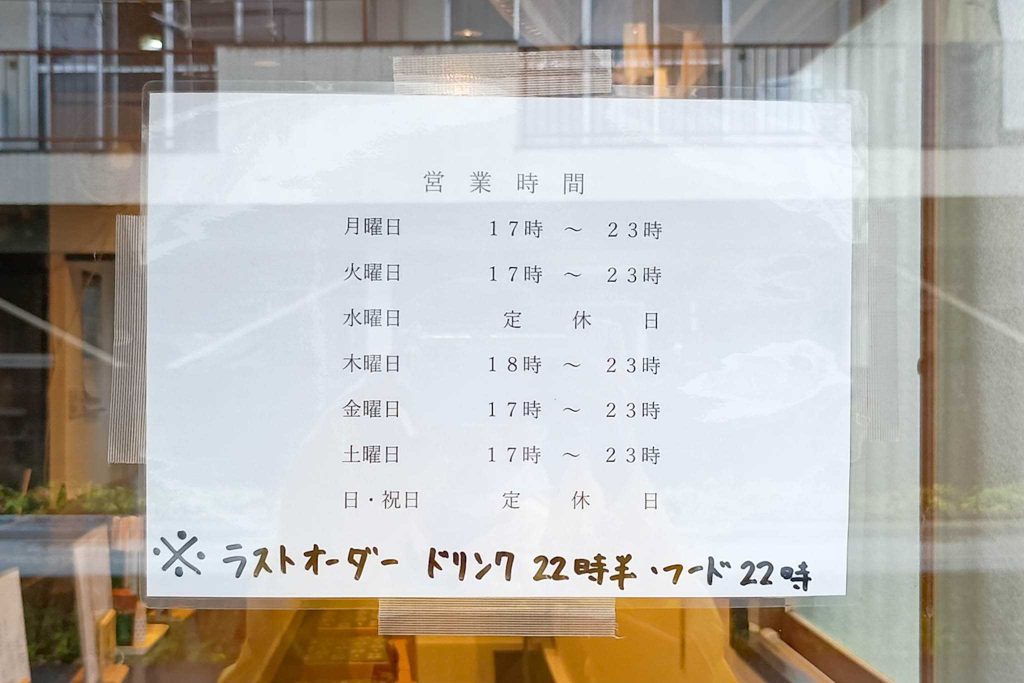 営業時間
月曜日 17時 ～ 23時
火曜日 17時 ～ 23時
水曜日 定休日
木曜日 18時 ～ 23時
金曜日 17時 ～ 23時
土曜日 17時 ～ 23時
日・祝日 定休日
※ ラストオーダー ドリンク 22時半・フード22時